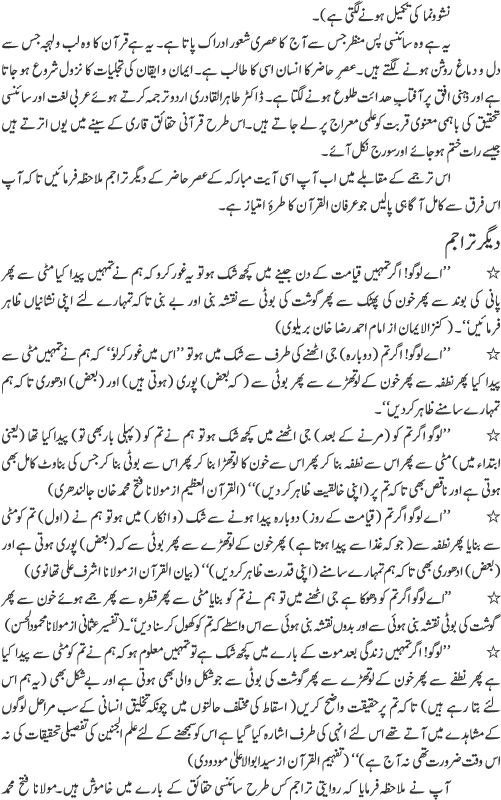 نشوونما کی تکمیل ہونے لگتی ہے)۔
یہ ہے وہ سائنسی پس منظر جس سے آج کا عصری شعور ادراک پاتا ہے۔ یہ ہے قرآن کا وہ لب ولہجہ جس سے
دل و دماغ روشن ہونے لگتے ہیں۔ عصرِ حاضر کا انسان اسی کا طالب ہے۔ ایمان و ایقان کی تجلیات کا نزول شروع ہو جاتا
ہے اور ذہنی افق پر آفتابِ ھدائت طلوع ہونے لگتا ہے۔ ڈاکٹر طاہرالقادری اردو ترجمہ کرتے ہوئے عربی لغت اور سائنسی
تحقیق کی باہمی معنوی قربت کو علمی معراج پر لے جاتے ہیں۔ اس طرح قرآنی حقائق قاری کے سینے میں یوں اترتے ہیں
جیسے رات ختم ہو جائے اور سورج نکل آئے۔
اس ترجمے کے مقابلے میں اب آپ اسی آیت مبارکہ کے عصر حاضر کے دیگر تراجم ملاحظہ فرمائیں تاکہ آپ
اس فرق سے کامل آگاہی پالیں جو عرفان القرآن کا طرۂ امتیاز ہے۔
دیگر تراجم
☆ ’’اے لوگو! اگر تمہیں قیامت کے دن جینے میں کچھ شک ہو تو یہ غور کرو کہ ہم نے تمہیں پیدا کیا مٹی سے پھر
پانی کی بوند سے پھر خون کی پھٹک سے پھر گوشت کی بوٹی سے نقشہ بنی اور بے بنی تاکہ تمہارے لئے اپنی نشانیاں ظاہر
فرمائیں‘‘۔ (کنزالایمان از امام احمد رضا خان بریلوی)
☆ ’’اے لوگو! اگر تم (دوبارہ) جی اٹھنے کی طرف سے شک میں ہو تو ’’اس میں غور کرلو‘‘ کہ ہم نے تمہیں مٹی سے
پیدا کیا پھر نطفہ سے پھر خون کے لوتھڑے سے پھر بوٹی سے (کہ بعض) پوری (ہوتی ہیں) اور (بعض) ادھوری تاکہ ہم
تمہارے سامنے ظاہر کردیں‘‘۔
☆ ’’لوگو اگر تم کو (مرنے کے بعد) جی اٹھنے میں کچھ شک ہو تو ہم نے تم کو (پہلی بار بھی تو) پیدا کیا تھا (یعنی
ابتداء میں) مٹی سے پھر اس سے نطفہ بنا کر پھر اس سے خون کا لوتھڑا بنا کر پھر اس سے بوٹی بنا کر جس کی بناوٹ کامل بھی
ہوتی ہے اور ناقص بھی تاکہ تم پر (اپنی خالقیت ظاہر کردیں)‘‘ (القرآن العظیم از مولانا فتح محمد خان جالندھری)
☆ ’’اے لوگو اگر تم (قیامت کے روز) دوبارہ پیدا ہونے سے شک (و انکار) میں ہو تو ہم نے (اول) تم کو مٹی
سے بنایا پھر نطفہ سے (جو کہ غذا سے پیدا ہوتا ہے) پھر خون کے لوتھڑے سے پھر بوٹی سے کہ (بعض) پوری ہوتی ہے اور
(بعض) ادھوری بھی تاکہ ہم تمہارے سامنے (اپنی قدرت ظاہر کردیں)‘‘ (بیان القرآن از مولانا اشرف علی تھانوی)
☆ ’’اے لوگو اگر تم کو دھوکا ہے جی اٹھنے میں تو ہم نے تم کو بنایا مٹی سے پھر قطرہ سے پھر جمے ہوئے خون سے پھر
گوشت کی بوٹی نقشہ بنی ہوئی سے اور بدوں نقشہ بنی ہوئی سے اس واسطے کہ تم کو کھول کر سنا دیں‘‘۔ (تفسیر عثمانی از مولانا محمود الحسن)
☆ ’’لوگو! اگر تمہیں زندگی بعد موت کے بارے میں کچھ شک ہے تو تمہیں معلوم ہو کہ ہم نے تم کو مٹی سے پیدا کیا
ہے پھر نطفے سے پھر خون کے لوتھڑے سے پھر گوشت کی بوٹی سے جو شکل والی بھی ہوتی ہے اور بے شکل بھی (یہ ہم اس
لئے بتا رہے ہیں) تاکہ تم پر حقیقت واضح کریں (اسقاط کی مختلف حالتوں میں چونکہ تخلیق انسانی کے سب مراحل لوگوں
کے مشاہدے میں آتے تھے اس لئے انہی کی طرف اشارہ کیا گیا ہے اس کو سمجھنے کے لئے علم الجنین کی تفصیلی تحقیقات کی نہ
اس وقت ضرورت تھی نہ آج ہے)‘‘ (تفہیم القرآن از سید ابوالاعلیٰ مودودی)
آپ نے ملاحظہ فرمایا کہ روایتی تراجم کس طرح سائنسی حقائق کے بارے میں خاموش ہیں۔ مولانا فتح محمد